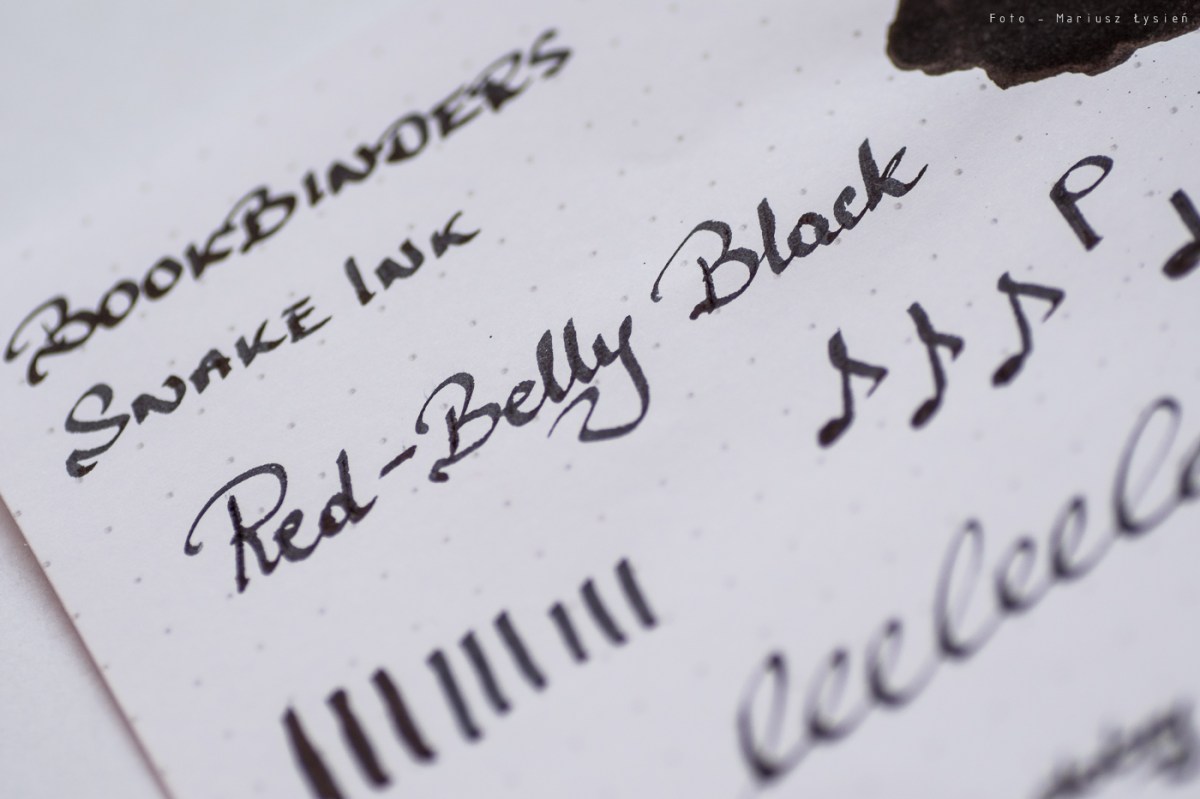 Foto - Mariusz Łysień
BookBinders
Snake Ink
Red-Belly Black
leeleele